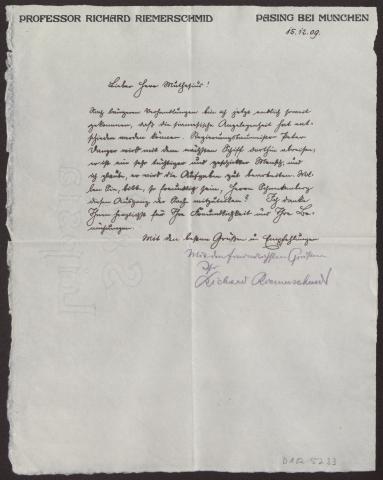 PROFESSOR RICHARD RIEMERSCHMID PASING BEI MÜNCHEN
15.12.09.
Lieber Herr Muthesius!
Nach langen Verhandlungen bin ich jetzt endlich soweit
gekommen, daß die siamesische Angelegenheit hat ent-
schieden werden können. Regierungsbaumeister Peter
Danzer wird mit dem nächsten Schiff dorthin abreisen,
er ist ein sehr tüchtiger und geschickter Mensch, und
ich glaube, er wird die Aufgaben gut bearbeiten. Wol-
len Sie, bitte, so freundlich sein, Herrn
diesen Ausgang der Sache mitzuteilen? Ich danke
Ihnen herzlichst für Ihre Freundlichkeit und Ihre Be-
mühungen.
Mit den besten Grüßen u. Empfehlungen
Mit den freundlichsten Grüßen
Ihr
Richard Riemerschmid